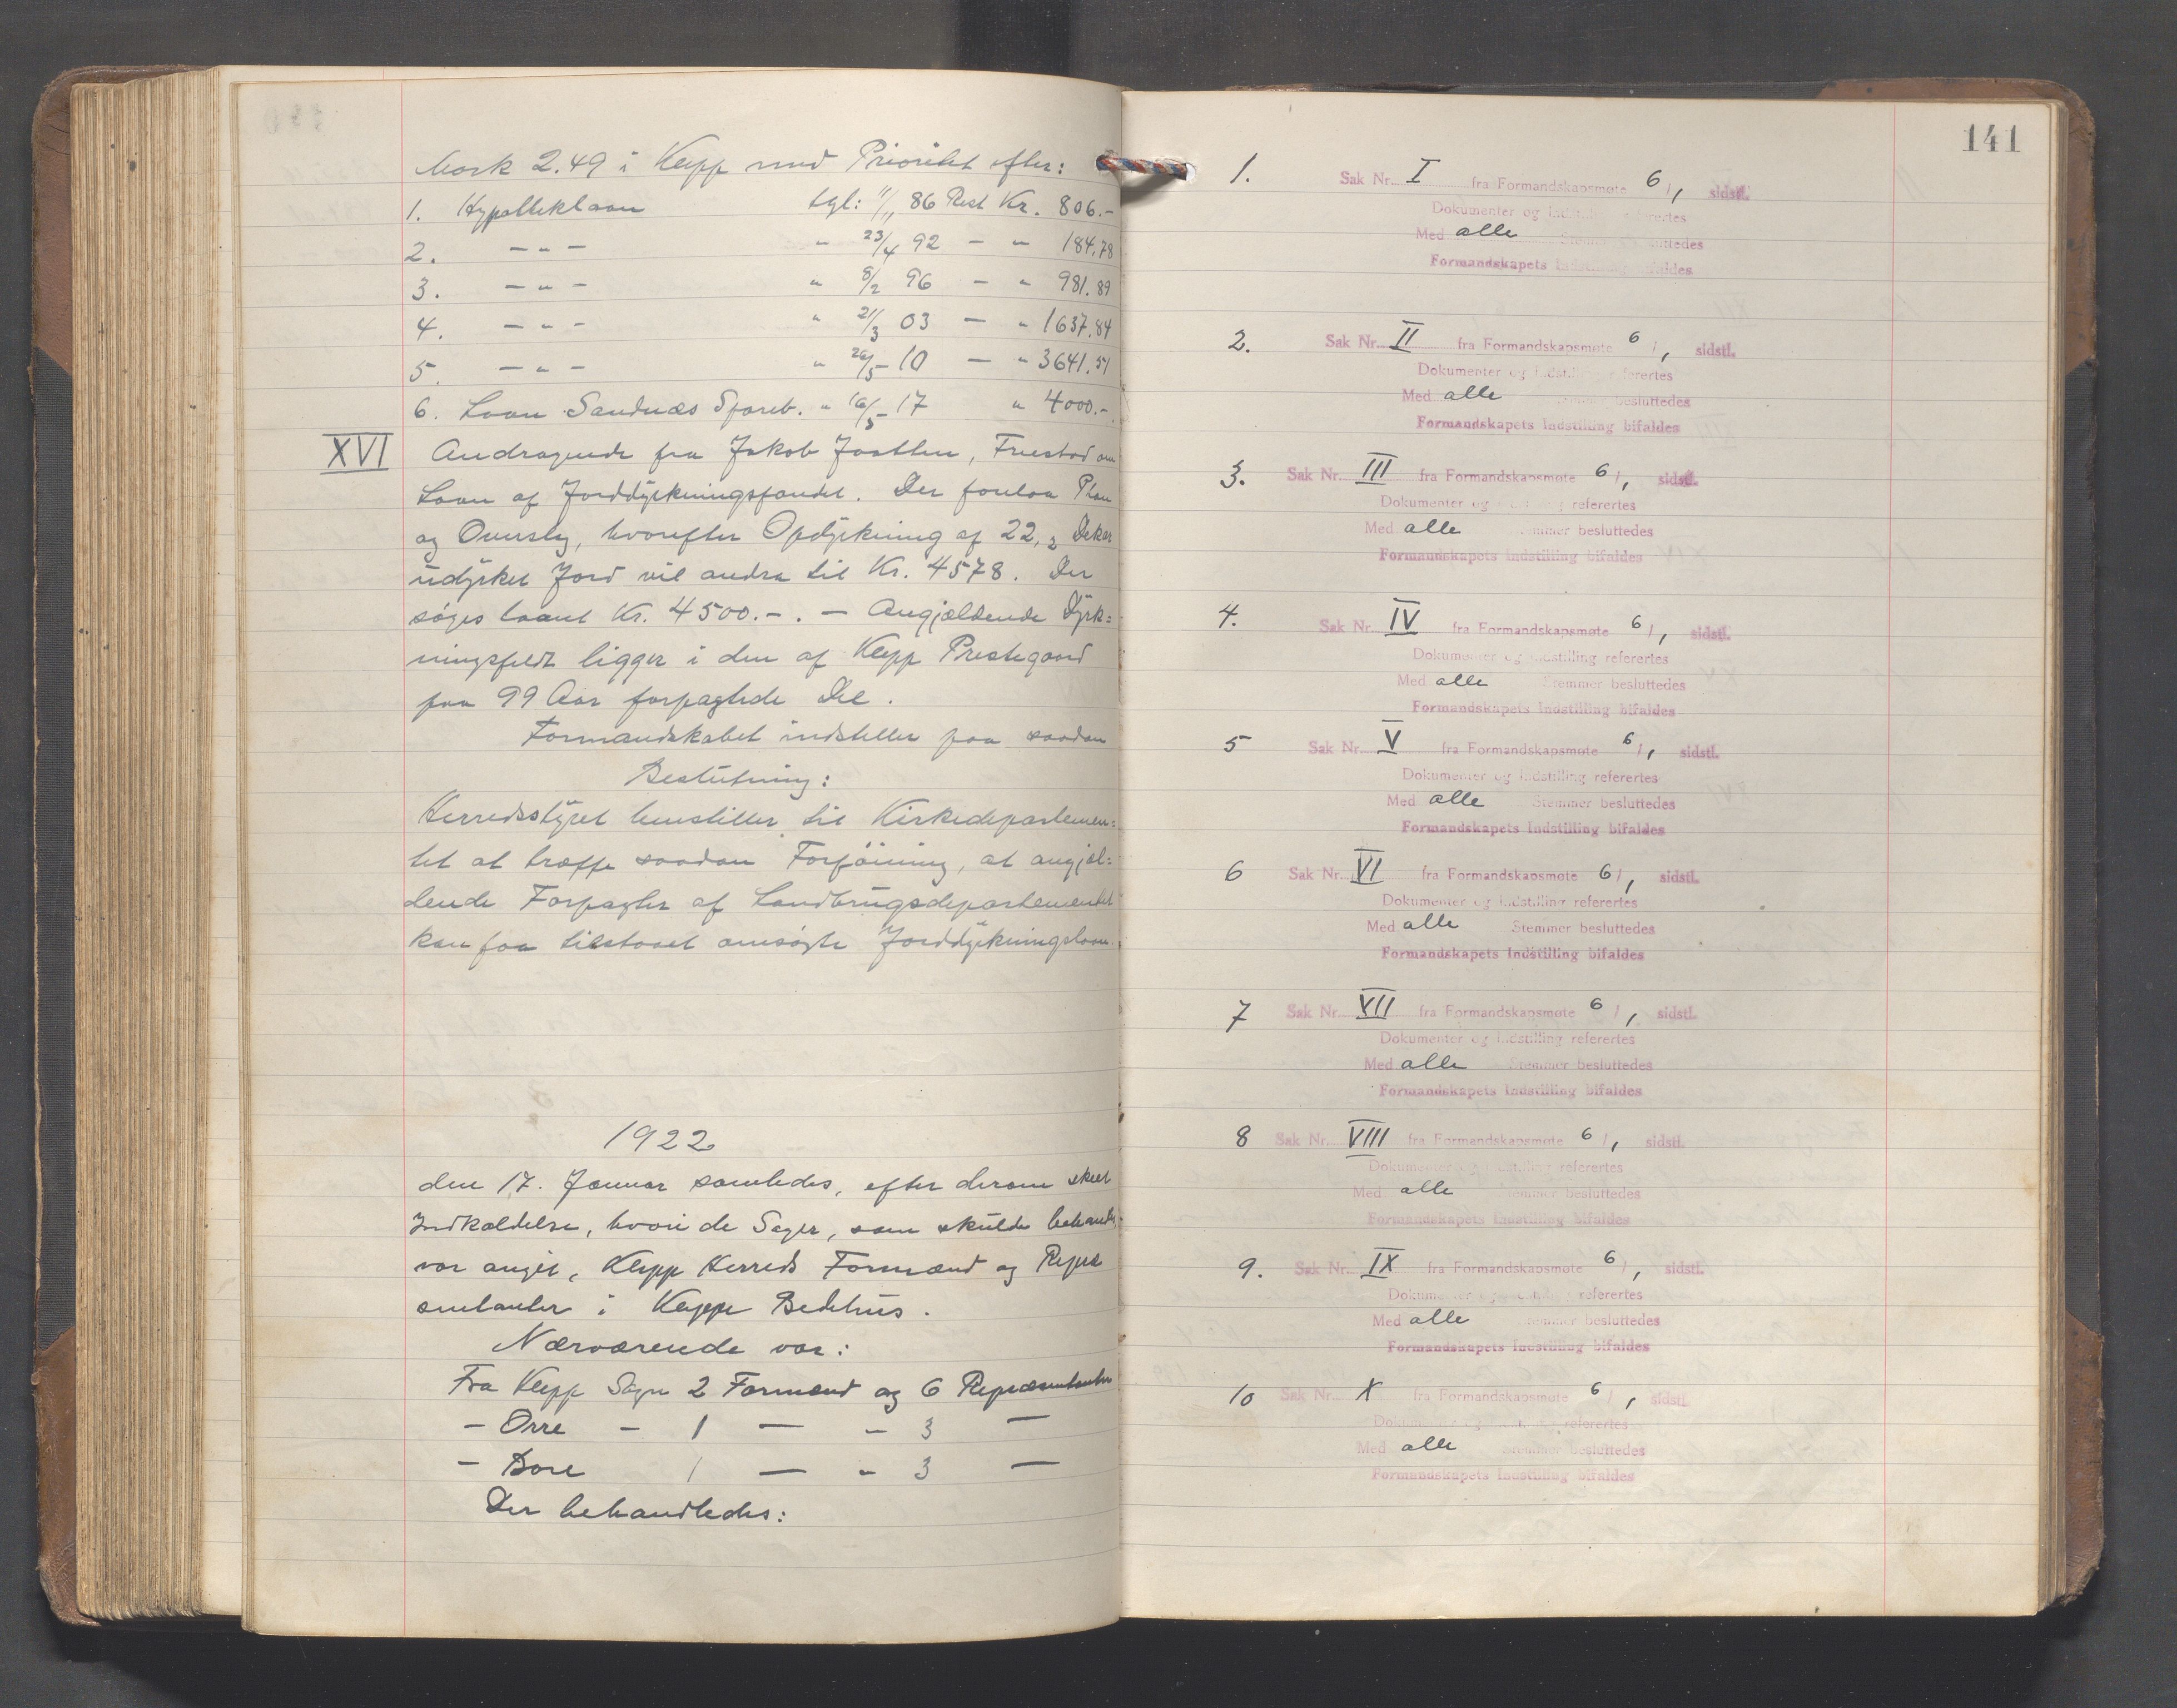 Mark 2.49 i Klepp med Prioritet efter:
1. Hypotheklaan tgl: 11/11 86 Rest Kr. 806.-
2. — " — " 23/4 92 — " 184,78
3. — " — " 8/2 96 — " 981.89
4. — " — " 21/3 03 — " 1637.84
5. — " — " 26/5 10 — " 3641.51
6. Laan Sandnæs Spareb. " 16/5 17 " 4000.-
XVI Andragende fra Jakob Joatlen, Fruestad om
Laan af Jorddyrkningsfondet. Der forelaa Plan
og Overslag, hvorefter Opdyrkning af 22,2 Dekar
udyrket Jord vil andra til Kr. 4578. Der
søges laant Kr. 4500.-. — Angjældende Dyrk=
ningsfeldt ligger i den af Klepp Prestegaard
paa 99 Aar forpagtede Del.
Formandskabet indstiller paa saadan
Beslutning:
Herredsstyret henstiller til Kirkedepartemen=
tet at træffe saadan Forføining, at angjæl=
dende Forpagter af Landbrugsdepartementet
kan faa tilstaaet omsøgte Jorddyrkningslaan.
1922
den 17. Januar samledes, efter derom skeet
Indkaldelse, hvori de Sager, som skulde behandles
var angit, Klepp Herreds Formænd og Repræ
sentanter i Klepp Bedehus.
Nærværende var:
Fra Klepp Sogn 2 Formænd og 6 Repræsentanter
— Orre — 1 — " 3 —
— Bore 1 — " 3 —
Der behandledes:
141
1. Sak Nr. I fra Formandskapsmøte 6/1, sidstl.
Dokumenter og Indstilling referertes
Med alle Stemmer besluttedes
Formandskapets Indstilling bifaldes
2. Sak Nr. II fra Formandskapsmøte 6/1, sidstl.
Dokumenter og Indstilling referertes
Med alle Stemmer besluttedes
Formandskapets Indstilling bifaldes
3. Sak Nr. III fra Formandskapsmøte 6/1, sidstl.
Dokumenter og Indstilling referertes
Med alle Stemmer besluttedes
Formandskapets Indstilling bifaldes
4. Sak Nr. IV fra Formandskapsmøte 6/1, sidstl.
Dokumenter og Indstilling referertes
Med alle Stemmer besluttedes
Formandskapets Indstilling bifaldes
5 Sak Nr. V fra Formandskapsmøte 6/1, sidstl.
Dokumenter og Indstilling referertes
Med alle Stemmer besluttedes
Formandskapets Indstilling bifaldes
6 Sak Nr. VI fra Formandskapsmøte 6/1, sidstl.
Dokumenter og Indstilling referertes
Med alle Stemmer besluttedes
Formandskapets Indstilling bifaldes
7 Sak Nr. VII fra Formandskapsmøte 6/1, sidstl.
Dokumenter og Indstilling referertes
Med alle Stemmer besluttedes
Formandskapets Indstilling bifaldes
8 Sak Nr. VIII fra Formandskapsmøte 6/1, sidstl.
Dokumenter og Indstilling referertes
Med alle Stemmer besluttedes
Formandskapets Indstilling bifaldes
9. Sak Nr. IX fra Formandskapsmøte 6/1, sidstl.
Dokumenter og Indstilling referertes
Med alle Stemmer besluttedes
Formandskapets Indstilling bifaldes
10 Sak Nr. X fra Formandskapsmøte 6/1, sidstl.
Dokumenter og Indstilling referertes
Med alle Stemmer besluttedes
Formandskapets Indstilling bifaldes